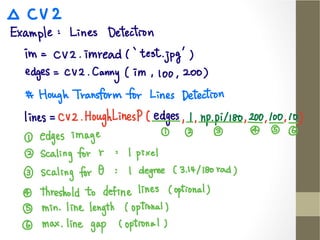 △ CV2
Example: Lines Detection
im = cv2.imread('test.jpg')
edges = cv2.Canny(im, 100, 200)
# Hough Transform for Lines Detection
lines = cv2.HoughLinesP(edges, 1, np.pi/180, 200, 100, 10)
① ② ③ ④ ⑤ ⑥
① edges image
② scaling for r : 1 pixel
③ scaling for θ : 1 degree (3.14/180 rad)
④ Threshold to define lines (optional)
⑤ min. line length (optional)
⑥ max. line gap (optional)